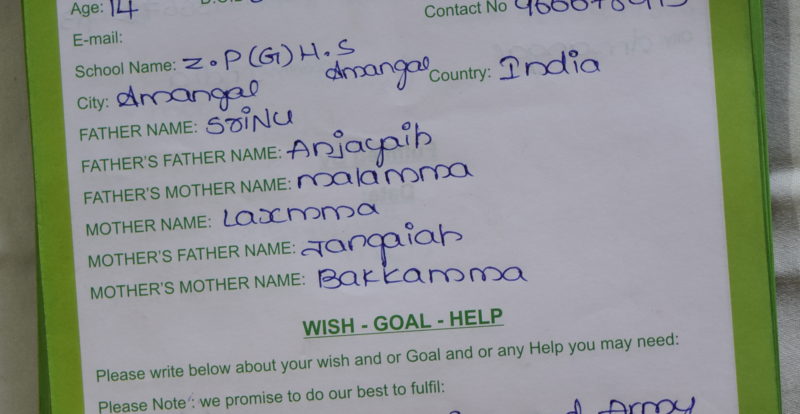 Age: 14
Contact No
E-mail:
School Name: Z.P(G) H.S Amangal
City: Amangal Country: India
FATHER NAME: SriNu
FATHER'S FATHER NAME: Anjayaih
FATHER'S MOTHER NAME: malamma
MOTHER NAME: Laxmma
MOTHER'S FATHER NAME: Jangaiah
MOTHER'S MOTHER NAME: Bakkamma
WISH - GOAL - HELP
Please write below about your wish and or Goal and or any Help you may need:
Please Note : we promise to do our best to fulfil:
Army